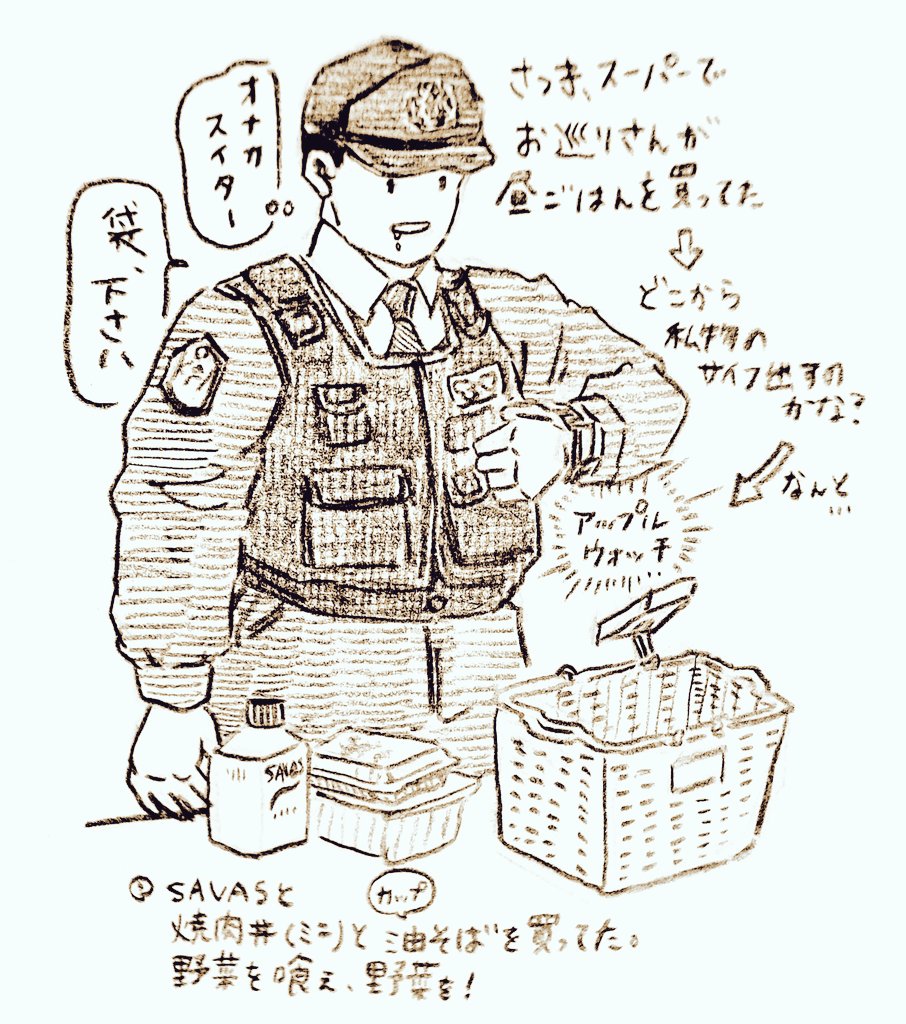 さっき、スーパーで
お巡りさんが
昼ごはんを買ってた
どこから
私物の
サイフ出すの
かな?
なんと
…
アップル
ウォッチ
オナカ
スイター
袋、下さい
SAVAS
SAVASと
カップ
焼肉丼(ミニ)と油そばを買ってた。
野菜を喰え、野菜を!